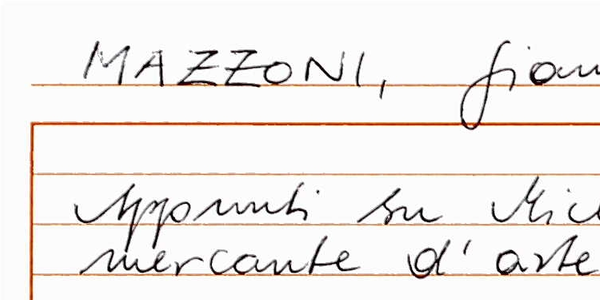 MAZZONI, Gian
Appunti su Mich
mercante d'arte